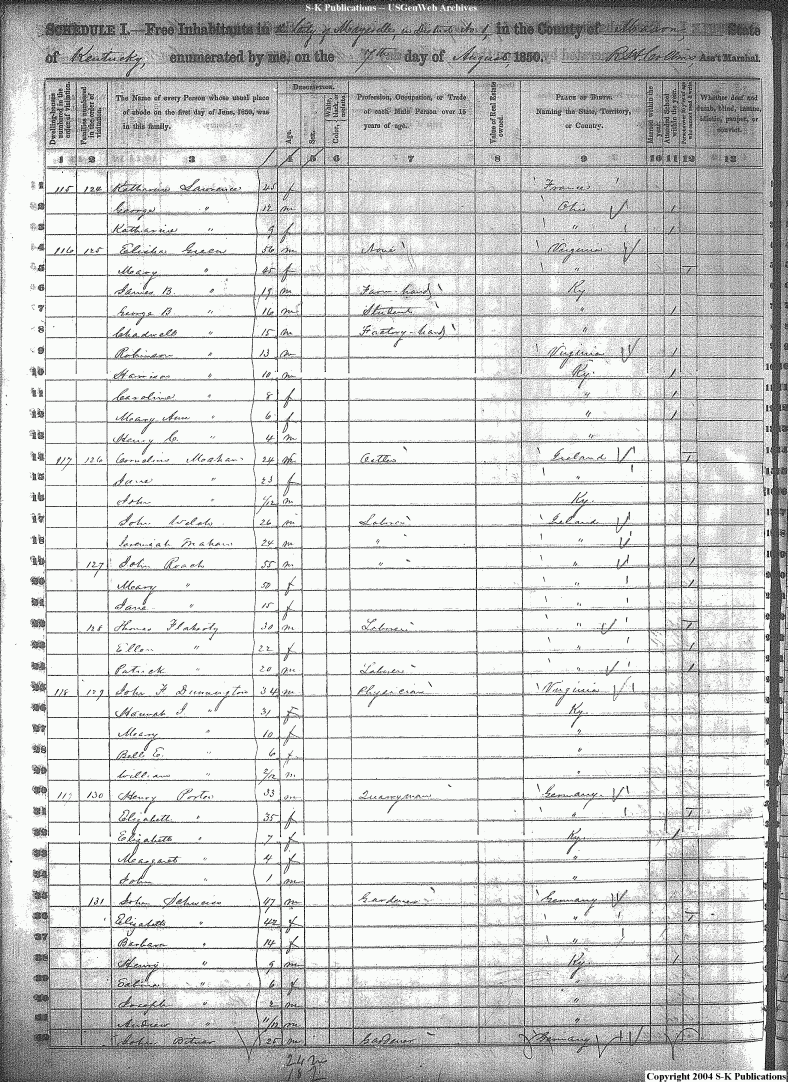 S-K Publications -- USGenWeb Archives
SCHEDULE I.—Free Inhabitants in City of Maysville in District No 1, in the County of Mason State
of Kentucky, enumerated by me, on the 7th day of August, 1850. Ass't Marshal.
Dwelling-houses numbered in the order of visitation. Families numbered in the order of visitation. The Name of every Person whose usual place of abode on the first day of June, 1850, was in this family. DESCRIPTION. Age. Sex. Color, White, black, or mulatto. Profession, Occupation, or Trade of each Male Person over 15 years of age. Value of Real Estate owned. PLACE OF BIRTH. Naming the State, Territory, or Country. Married within the year. Attended School within the year. Whether deaf and dumb, blind, insane, idiotic, pauper, or convict.
1 2 3 4 5 6 7 8 9 10 11 12 13
1 115 124 Katharine Lawrence 45 f France
2 George " 12 m Ohio 1
3 Katharine " 9 f " 1
4 116 125 Elisha Green 56 m None Virginia
5 Mary " 45 f " 1
6 James B. " 19 m Farm-hand Ky
7 George B " 16 m Student " 1
8 Chadwell " 15 m Factory-hand "
9 Robinson " 13 m Virginia 1
10 Harrison " 10 m Ky. 1
11 Caroline " 8 f " 1
12 Mary Ann " 6 f " 1
13 Henry C. " 4 m "
14 117 126 Cornelius 24 m Ostler Ireland 1
15 Jane " 23 f "
16 John " /12 m Ky.
17 John Welsh 26 m Laborer Ireland
18 Jeremiah Mahan 24 m " "
19 127 John Roach 55 m " " 1
20 Mary " 50 f " 1
21 Jane " 15 f "
22 128 Thomas Flaherty 30 m Laborer " 1
23 Ellen " 22 f " 1
24 Patrick " 20 m Laborer " 1
25 118 129 John F Dunnington 34 m Physician Virginia
26 Hannah J. " 31 f Ky.
27 Mary " 10 f "
28 Belle E. " 6 f "
29 William " /12 m "
30 119 130 Henry Porter 33 m Quarryman Germany
31 Elizabeth " 35 f " 1
32 Elizabeth " 7 f Ky. 1
33 Margaret " 4 f "
34 John " 1 m "
35 131 John 47 m Gardener Germany
36 Elizabeth " 42 f " 1
37 Barbara " 14 f "
38 Henry " 9 m Ky 1
39 " 6 f "
40 Joseph " 2 m "
41 Andrew " 11/12 m "
42 John 25 m Gardener Germany
24 m
18 f
Copyright 2004 S-K Publications